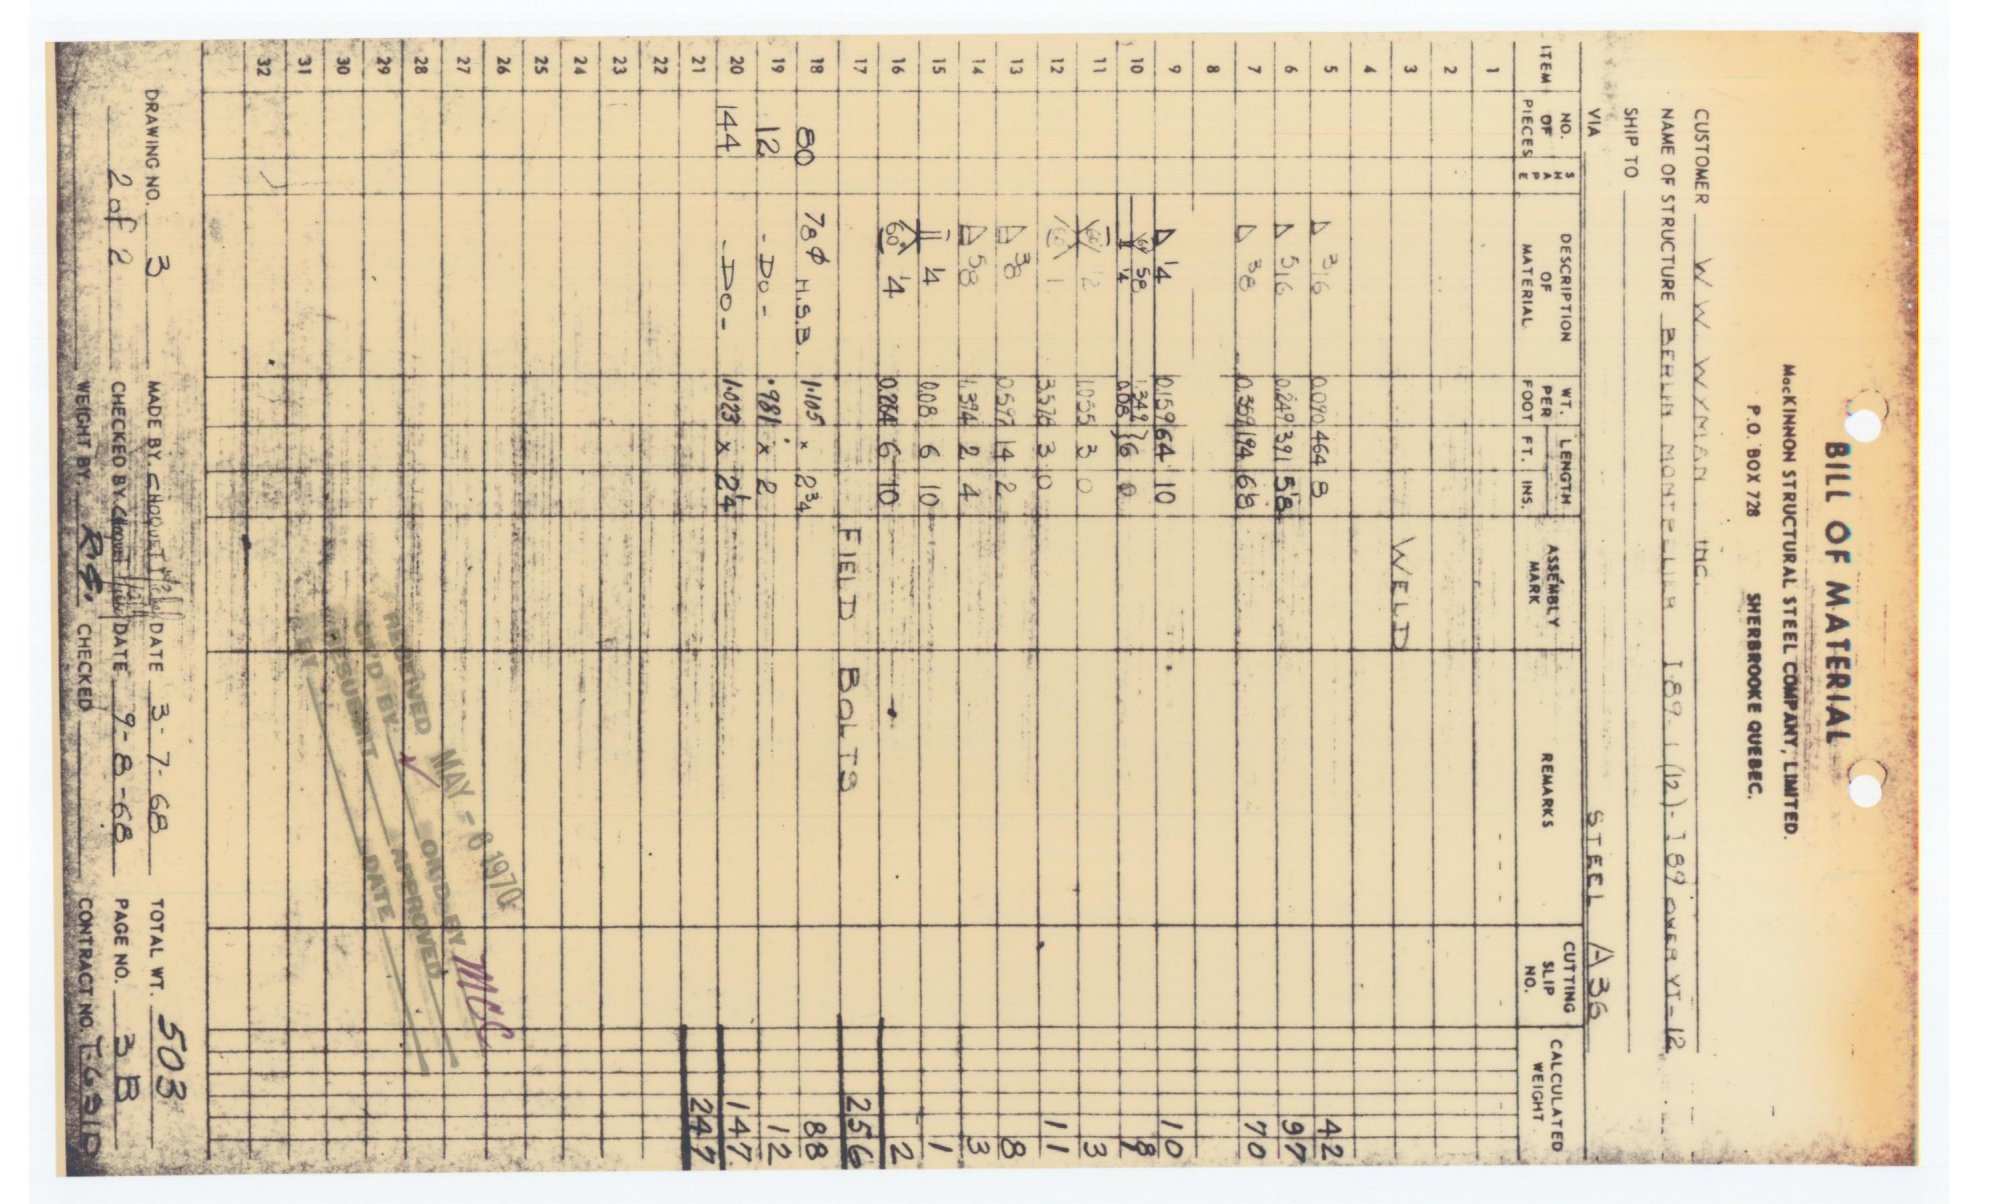 BILL OF MATERIAL
MacKINNON STRUCTURAL STEEL COMPANY, LIMITED.
P.O. BOX 728 SHERBROOKE QUEBEC.
CUSTOMER W W WYMAN INC.
NAME OF STRUCTURE BERLIN MONTPELIER I 89 1 (12) - I 89 OVER VT-12
SHIP TO
VIA STEEL A36
ITEM NO. OF PIECES SHAPE DESCRIPTION OF MATERIAL WT. PER FOOT LENGTH FT. INS. ASSEMBLY MARK REMARKS CUTTING SLIP NO. CALCULATED WEIGHT
1
2
3 WELD
4
5 3/16 0.090 464 8 42
6 5/16 0.249 391 5 1/8 97
7 3/8 0.359 194 6 1/8 70
8
9 1/4 0.159 64 10 10
10 60 5/8 1/4 1.349 0.08 } 6 0 8 1
11 60 1/2 1.035 3 0 3
12 60 1 3.578 3 0 11
13 3/8 0.597 14 2 8
14 5/8 1.394 2 4 3
15 1/4 0.08 6 10 1
16 60° 1/4 0.264 6 10 2
17 FIELD BOLTS 256
18 80 7/8 φ H.S.B. 1.105 x 2 3/4 88
19 12 - DO - .981 x 2 12
20 144 - DO - 1.023 x 2 1/4 147
21 247
22
23
24
25
26
27
28
29
30
31
32
RECEIVED MAY - 6 1970
CK'D BY ON D. BY MCC
RESUBMIT APPROVED
BY DATE
DRAWING NO. 3 MADE BY. CHOQUETTE DATE 3-7-68 TOTAL WT. 503
2 of 2 CHECKED BY DATE 9-8-68 PAGE NO. 3 B
WEIGHT BY R.G. CHECKED CONTRACT NO.